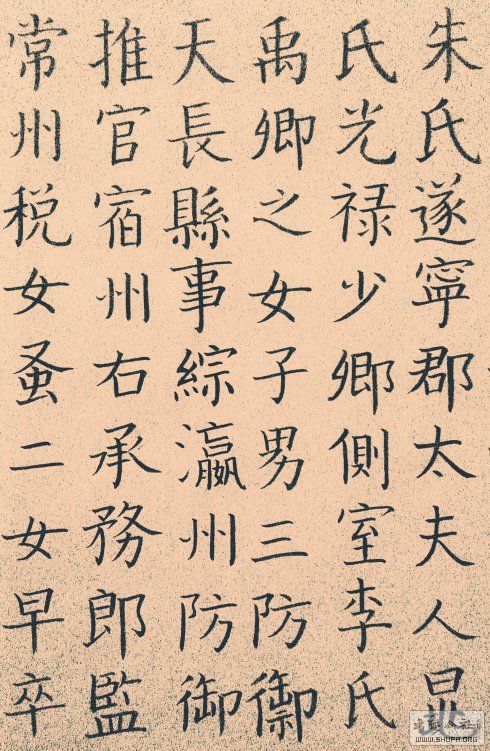 朱氏遂寧郡太夫人晁
氏光禄少卿側室李氏
禹卿之女子男三防禦
天長縣事綜瀛州防御
推官宿州右承務郎監
常州税女蚤二女早卒
WWW.SHUFA.ORG